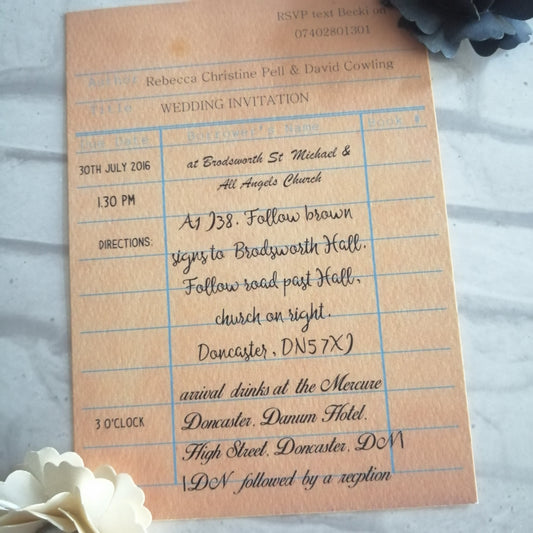 RSVP text Becki on
07402801301
Author Rebecca Christine Pell & David Cowling
Title WEDDING INVITATION
Due Date Borrower's Name Book #
30TH JULY 2016 at Brodsworth St Michael &
All Angels Church
1.30 PM
A1 J38. Follow brown
DIRECTIONS:
signs to Brodsworth Hall.
Follow road past Hall,
church on right.
Doncaster, DN5 7XJ
arrival drinks at the Mercure
3 O'CLOCK Doncaster, Danum Hotel,
High Street, Doncaster, DN1
1DN followed by a recption